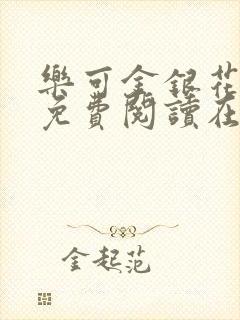 樂可金銀花
免費閱讀在
金起范